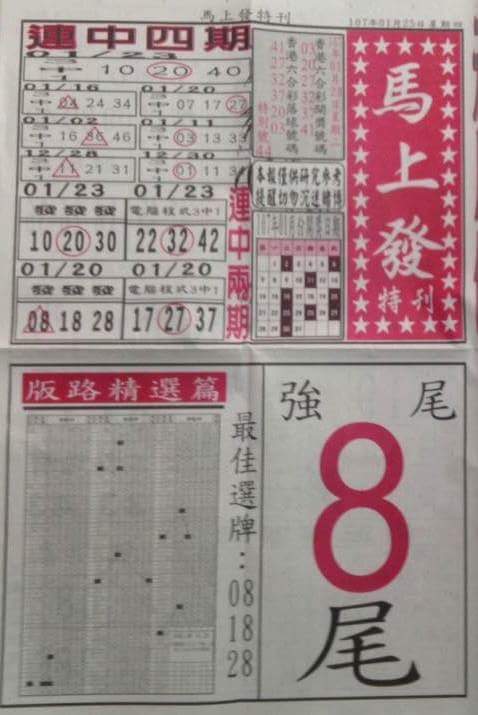 馬上發特刊
107年01月25日星期四
連中四期
01/23
3中1 10 20 40
01/16
3中1 04 24 34
01/20
3中1 07 17 27
01/02
3中1 16 36 46
01/11
3中1 03 13 33
12/28
3中1 11 21 31
12/30
3中1 01 11 30
01/23
發 發 發
10 20 30
01/23
電腦程式3中1
22 32 42
01/20
發 發 發
08 18 28
01/20
電腦程式3中1
17 27 37
連中兩期
香港六合彩開獎號碼
03 20 27 32 37 41
香港六合彩落球號碼
41 27 32 37 20 03
特別號
44
本報僅供研究參考
提醒切勿沉迷賭博
107年01月份開獎日期
馬上發
特刊
版路精選篇
最佳選牌：08 18 28
強 尾
8
尾